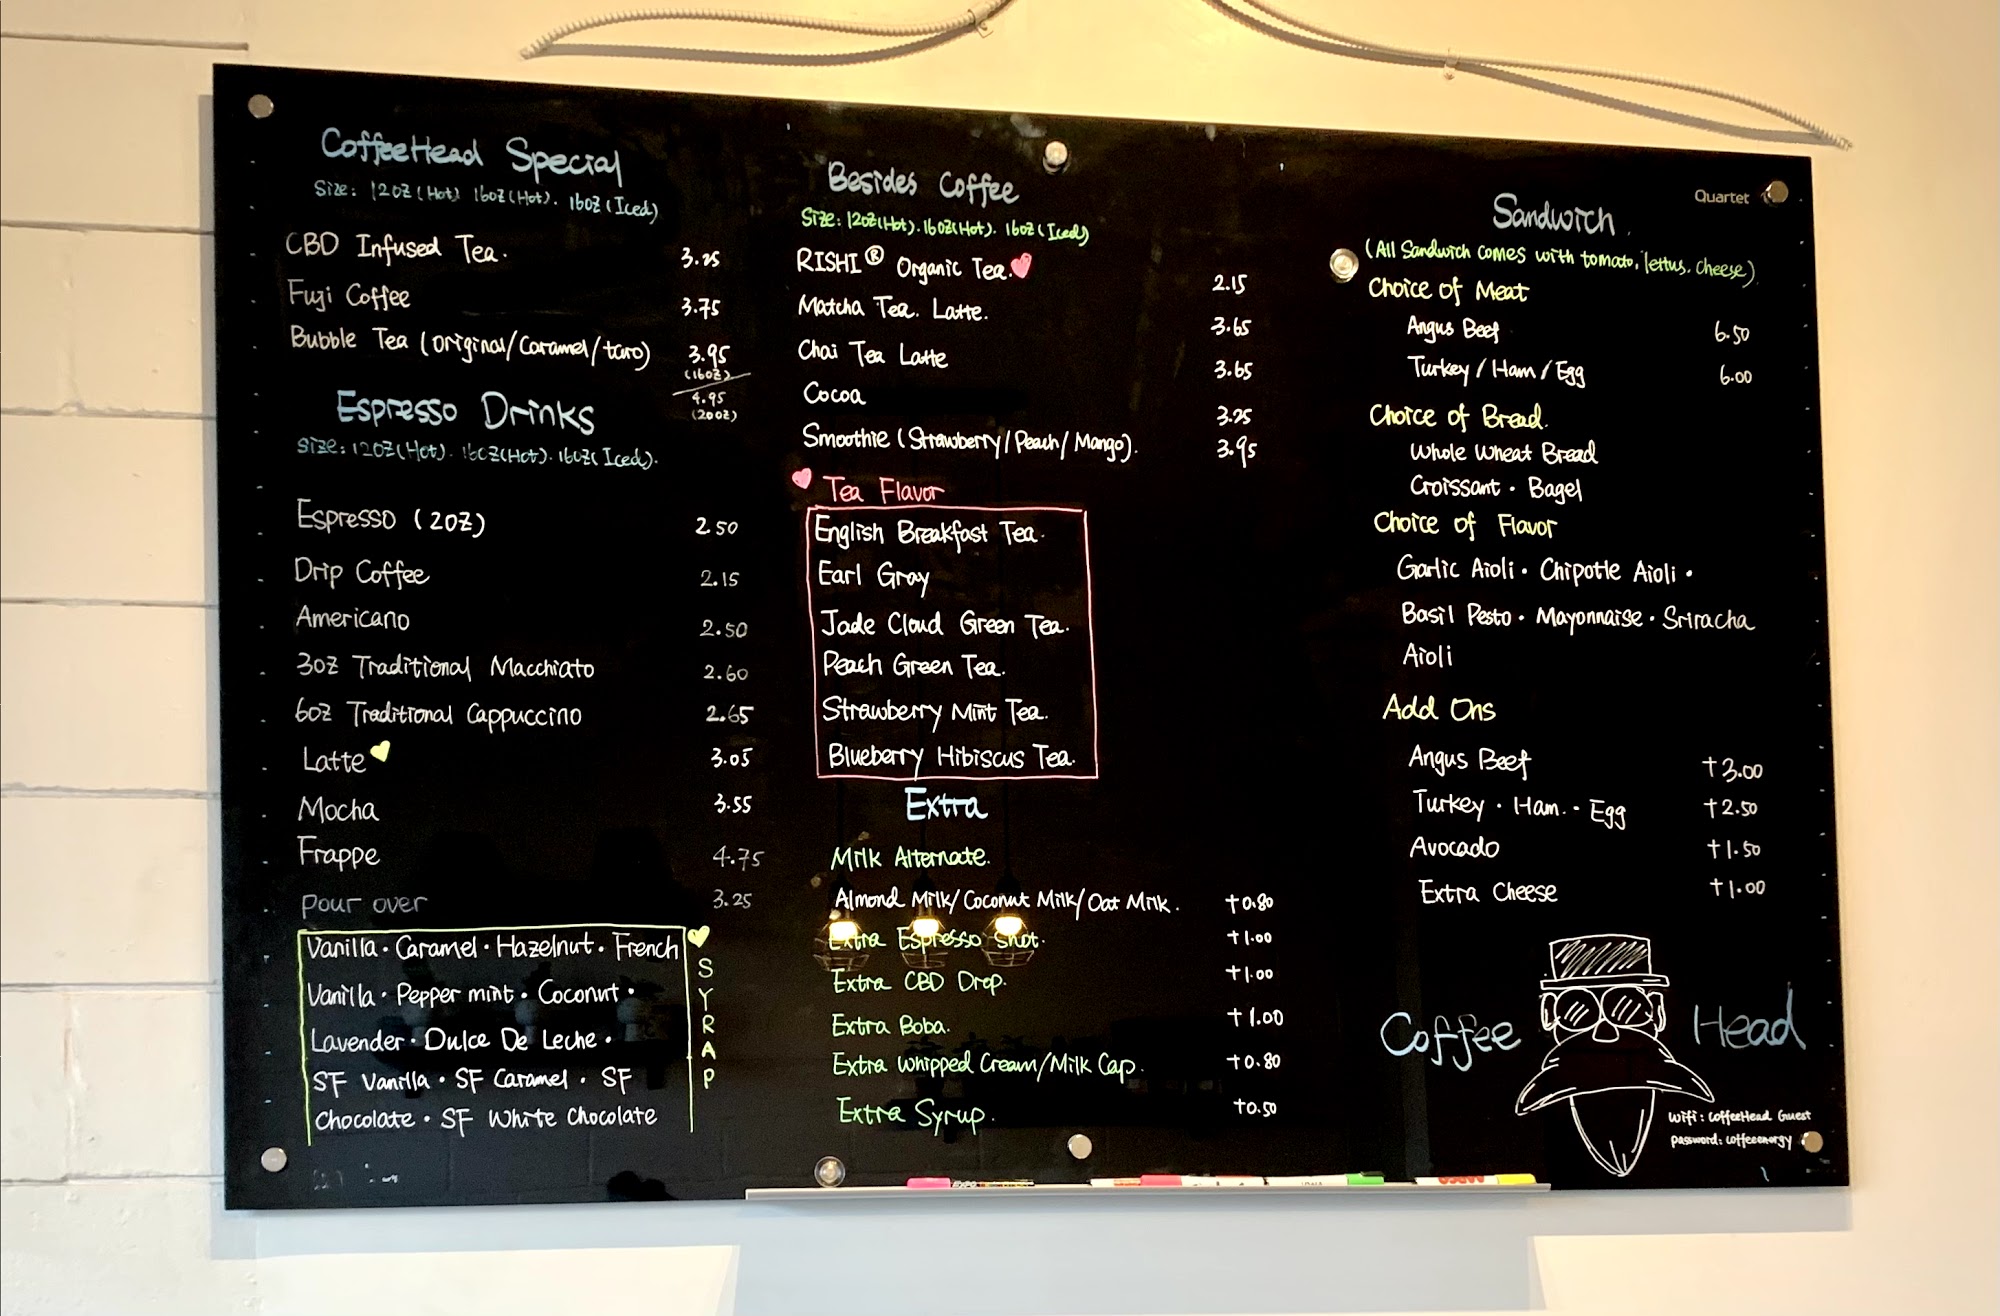 CoffeeHead Special
Size: 12oz(Hot). 16oz(Hot). 16oz(Iced)
CBD Infused Tea. 3.25
Fuji Coffee 3.75
Bubble Tea (original/Caramel/taro) 3.95
(16oz)
4.95
(20oz)
Espresso Drinks
Size: 12oz(Hot). 16oz(Hot). 16oz(Iced).
Espresso (2oz) 2.50
Drip Coffee 2.15
Americano 2.50
3oz Traditional Macchiato 2.60
6oz Traditional Cappuccino 2.65
Latte 3.05
Mocha 3.55
Frappe 4.75
pour over 3.25
Vanilla · Caramel · Hazelnut · French
Vanilla · Pepper mint · Coconut ·
Lavender · Dulce De Leche ·
SF Vanilla · SF Caramel · SF
Chocolate · SF White Chocolate
SYRAP
Besides Coffee
Size: 12oz(Hot). 16oz(Hot). 16oz(Iced)
RISHI® Organic Tea. 2.15
Matcha Tea. Latte. 3.65
Chai Tea Latte 3.65
Cocoa 3.25
Smoothie (Strawberry/Peach/Mango). 3.95
Tea Flavor
English Breakfast Tea.
Earl Gray
Jade Cloud Green Tea.
Peach Green Tea.
Strawberry Mint Tea.
Blueberry Hibiscus Tea.
Extra
Milk Alternate.
Almond Milk/Coconut Milk/Oat Milk. +0.80
Extra Espresso Shot. +1.00
Extra CBD Drop. +1.00
Extra Boba. +1.00
Extra Whipped Cream/Milk Cap. +0.80
Extra Syrup. +0.50
Quartet
Sandwich
(All Sandwich comes with tomato, lettus. cheese)
Choice of Meat
Angus Beef 6.50
Turkey/Ham/Egg 6.00
Choice of Bread.
Whole Wheat Bread
Croissant · Bagel
Choice of Flavor
Garlic Aioli · Chipotle Aioli ·
Basil Pesto · Mayonnaise · Sriracha
Aioli
Add Ons
Angus Beef +3.00
Turkey · Ham · Egg +2.50
Avocado +1.50
Extra Cheese +1.00
Coffee Head
Wifi: CoffeeHead Guest
password: coffeeenergy